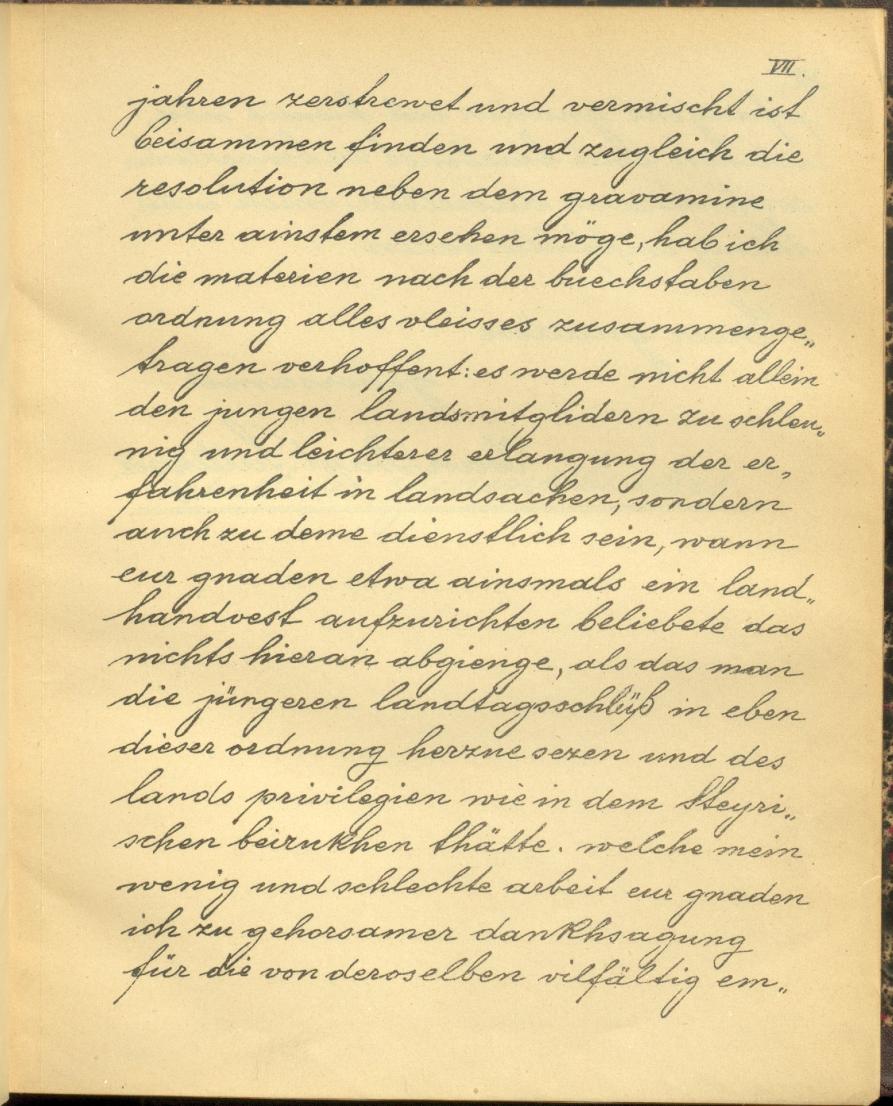 VII.
jahren zerstrewet und vermischt ist
beisammen finden und zugleich die
resolution neben dem gravamine
unter ainstem ersehen möge, hab ich
die materien nach der buechstaben
ordnung alles vleisses zusammenge„
tragen verhoffent: es werde nicht allein
den jungen landsmitglidern zu schleu„
nig und leichterer erlangung der er„
fahrenheit in landsachen, sondern
auch zu deme dienstlich sein, wann
eur gnaden etwa ainsmals ein land„
handvest aufzurichten beliebete das
nichts hieran abgienge, als das man
die jüngeren landtagsschlüß in eben
dieser ordnung herzue sezen und des
lands privilegien wie in dem Steyri„
schen beirukhen thätte. welche mein
wenig und schlechte arbeit eur gnaden
ich zu gehorsamer dankhsagung
für die von deroselben vilfältig em„